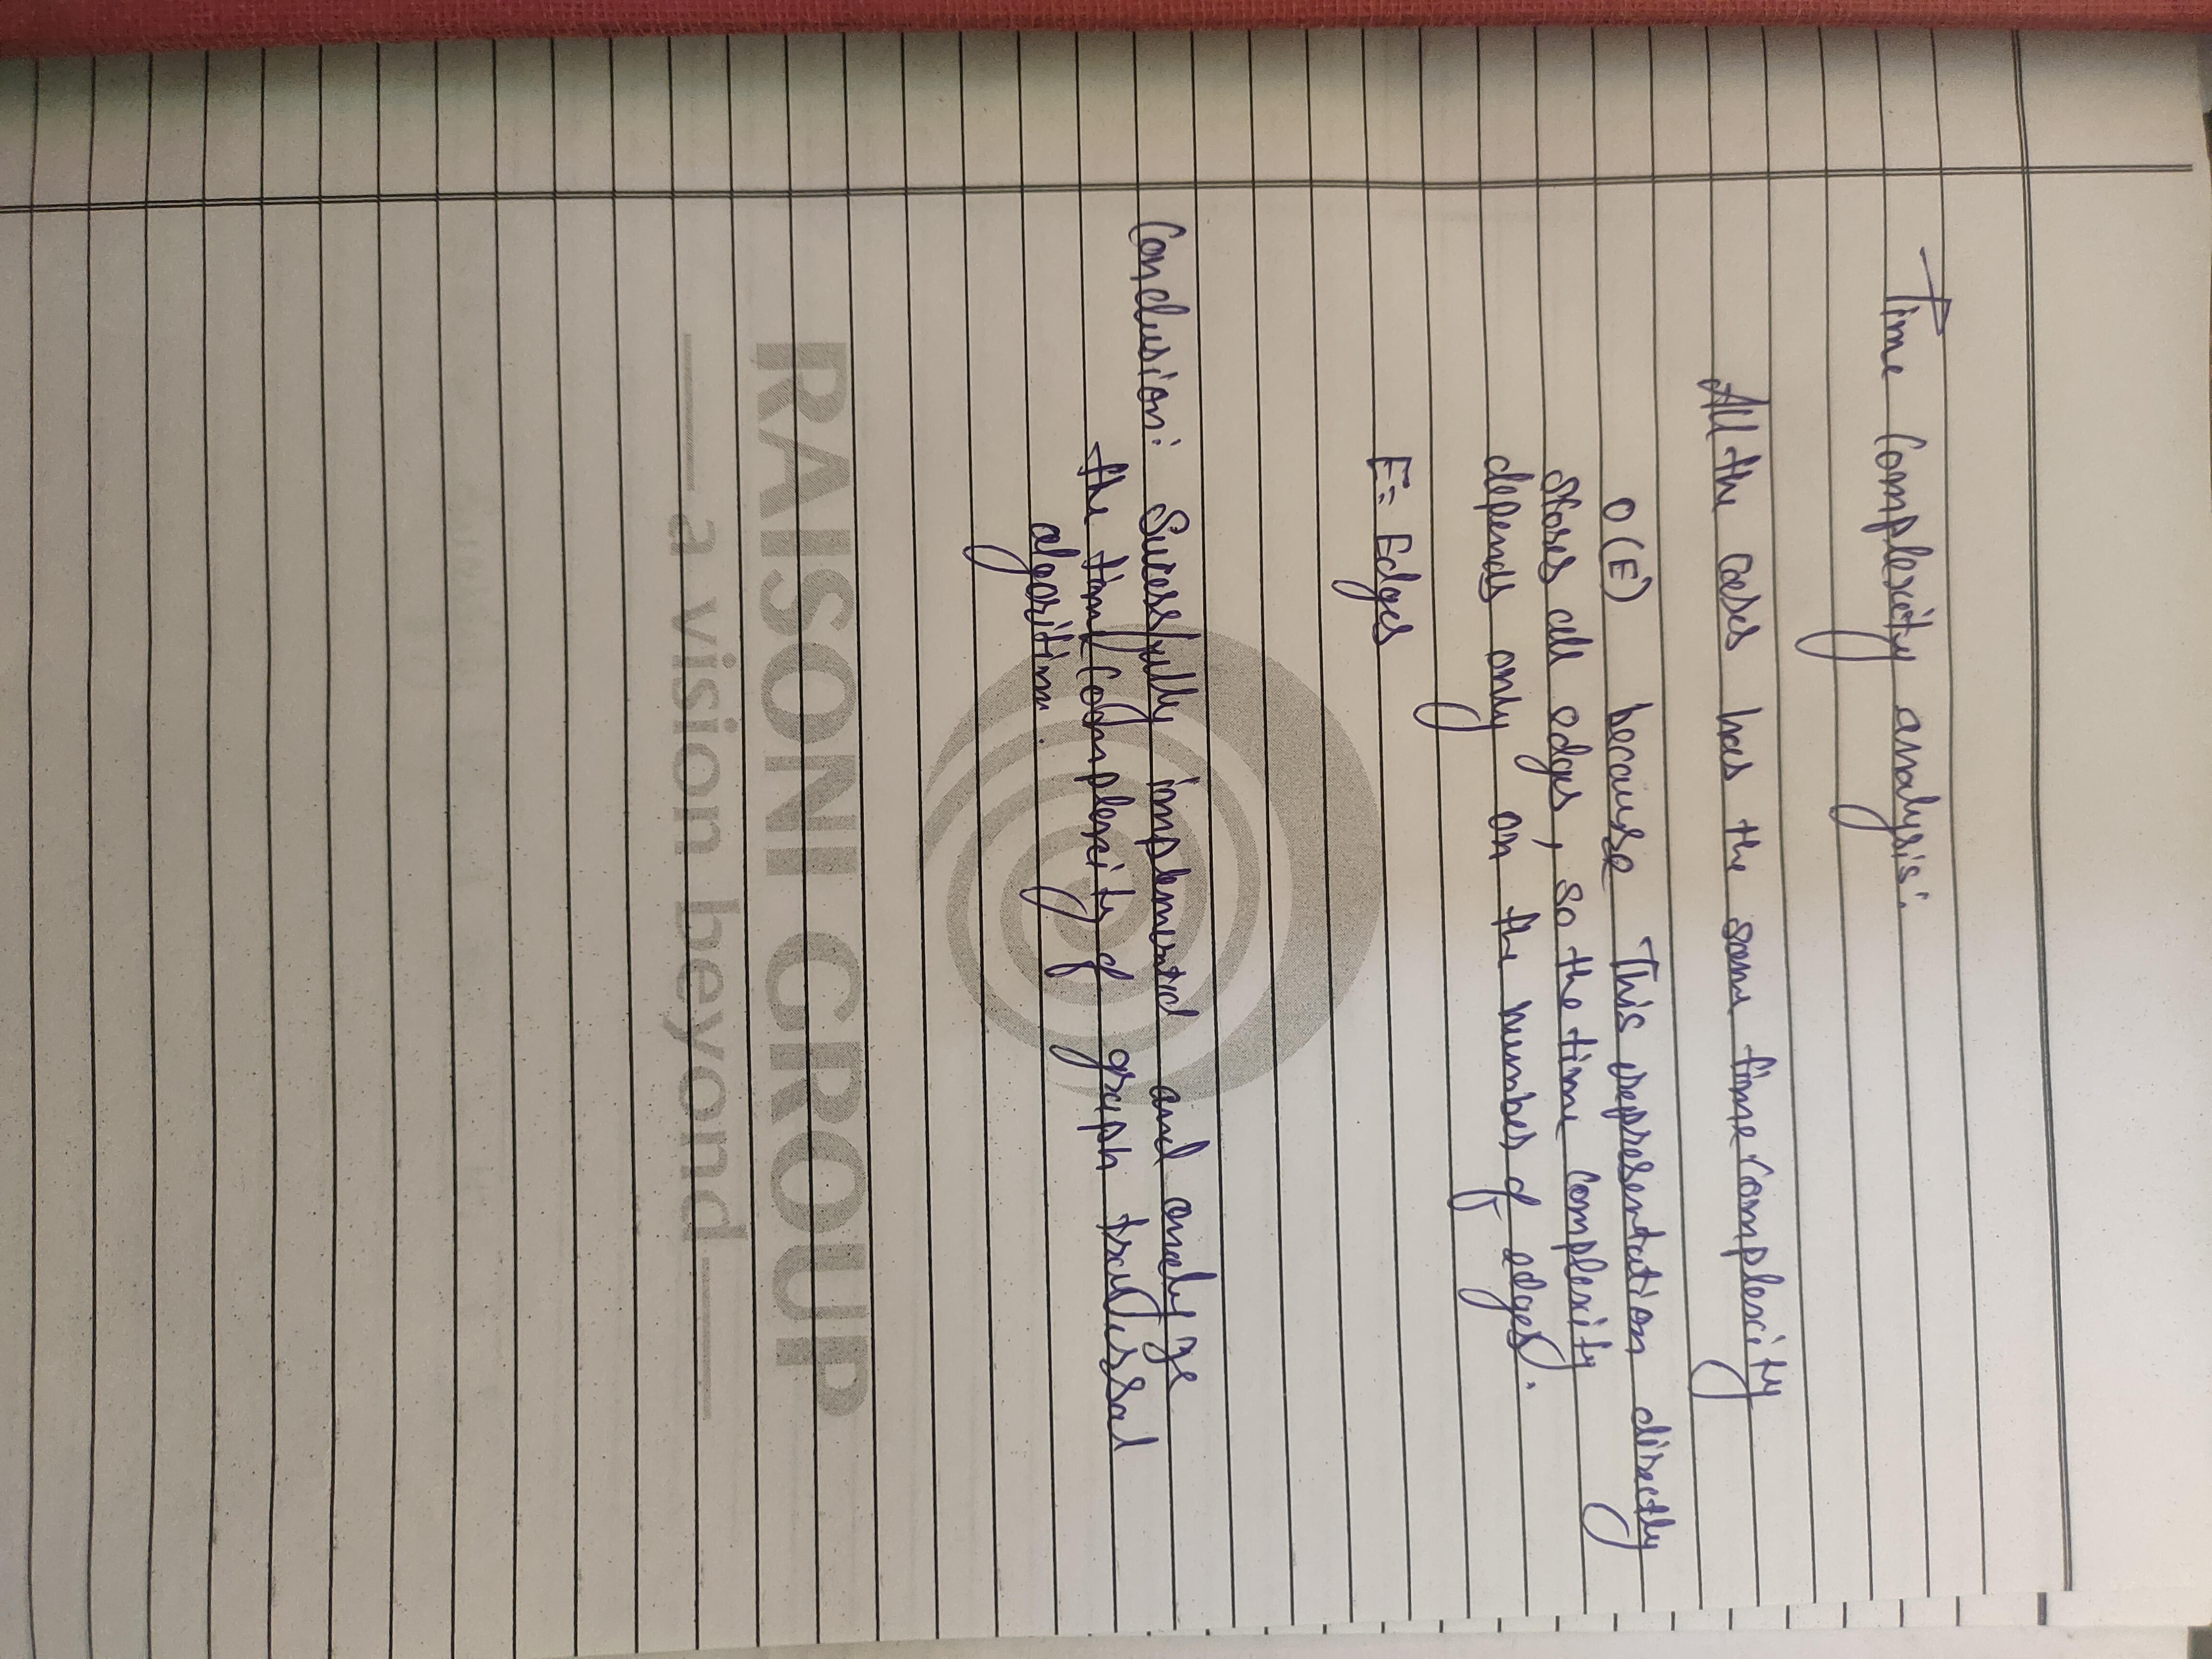 Time Complexity analysis:
All the cases has the same time complexity
O(E) because This representation directly
stores all edges, so the time complexity
depends only on the number of edges.
E= Edges
Conclusion: Sucessfully implemented and analyze
the time complexity of graph traversal
algoritim.
RAISONI GROUP
a vision beyond